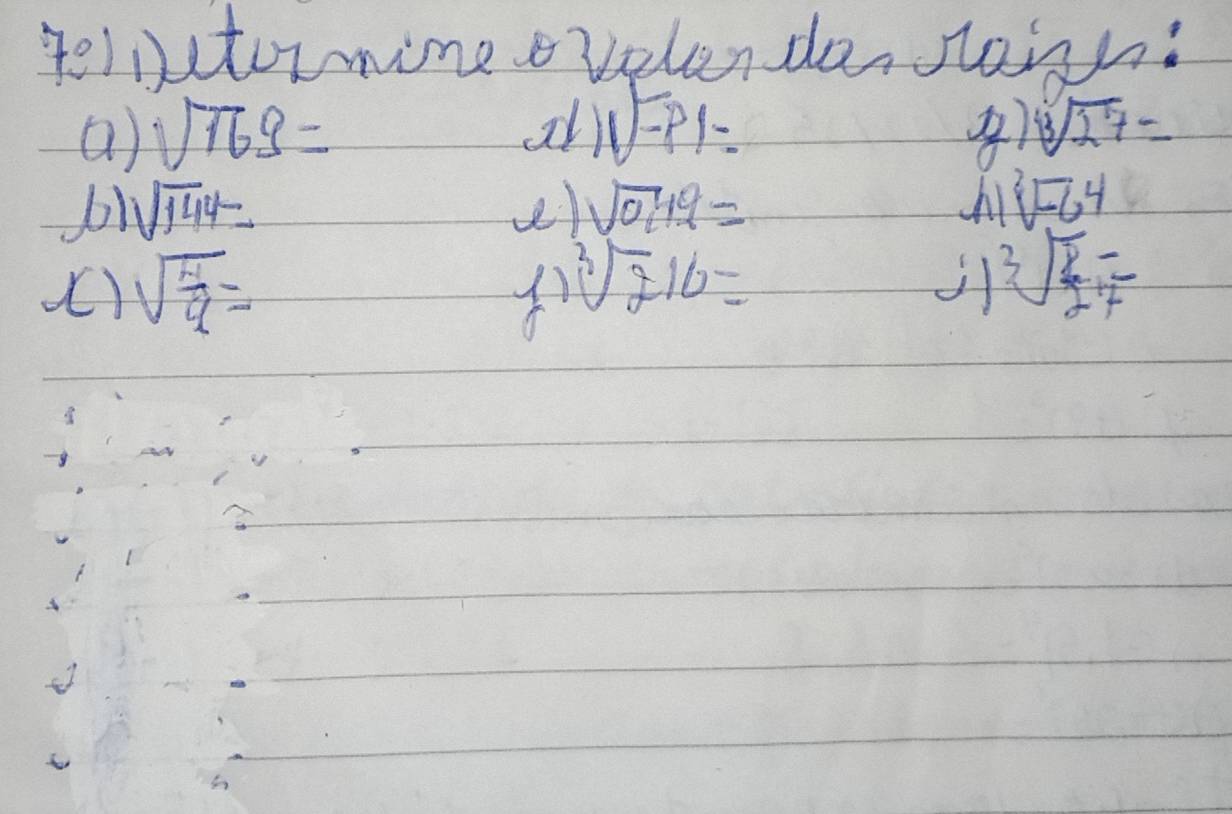 7º) Determine o valor das raizes:
a) √169 = d) √-81 = g) ³√27 =
b) √144 = e) √0,49 = h) ³√-64
c) √4/9 = f) ³√216 = i) ³√8/27 =